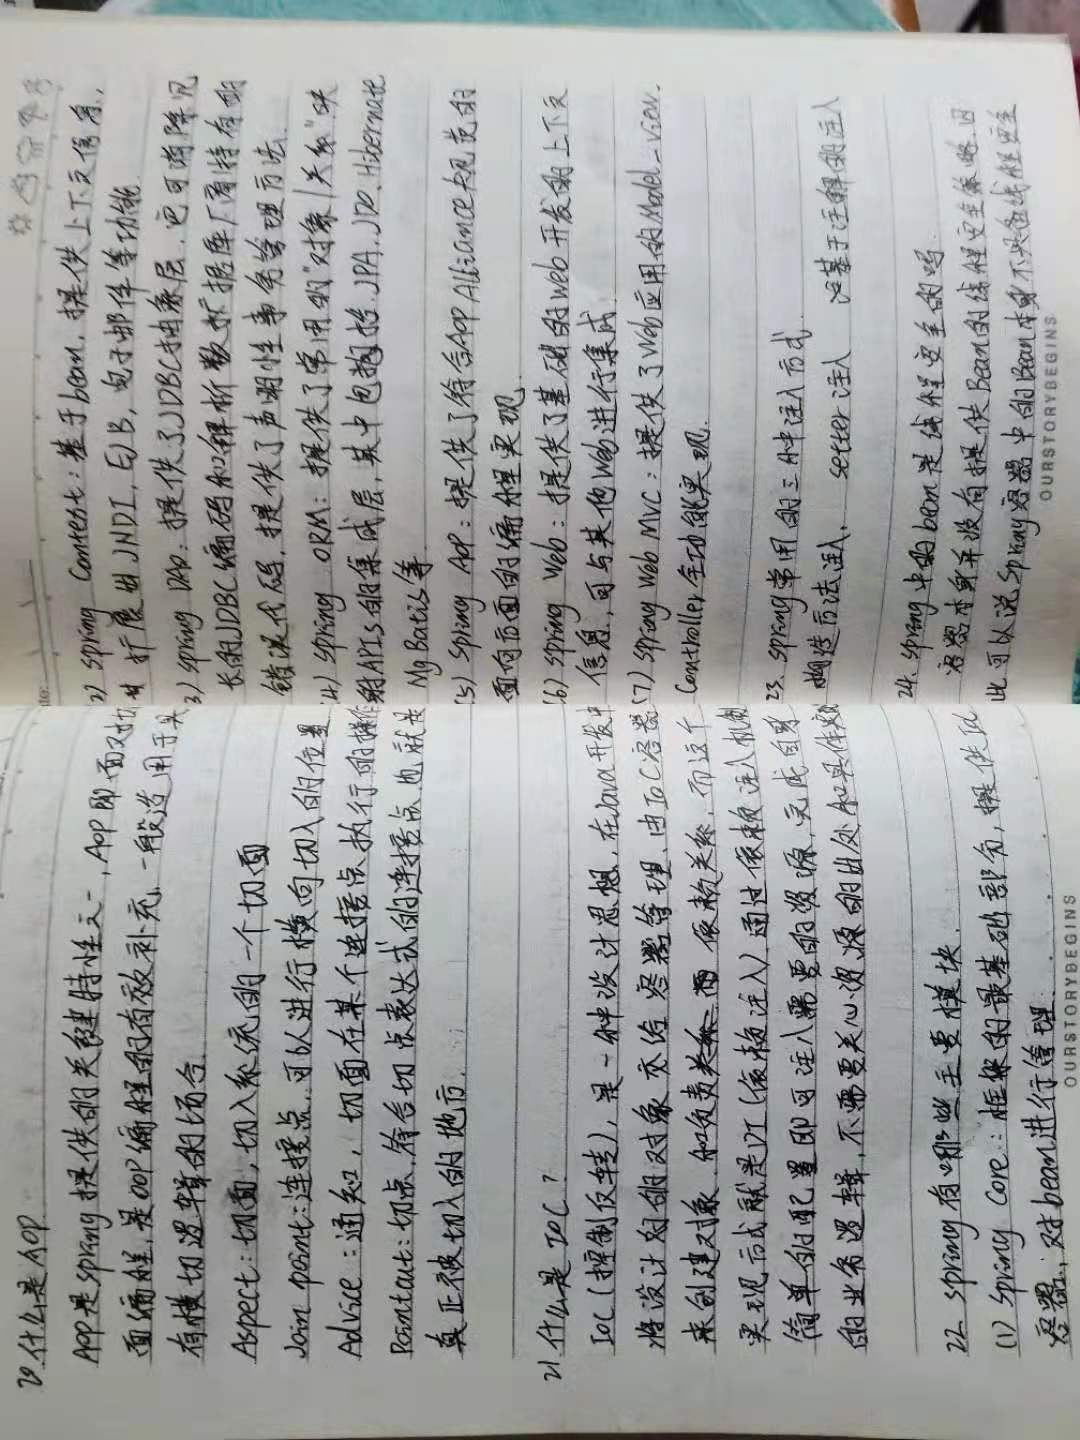 20.什么是AOP
AOP是spring提供的关键特性之一,AOP即面对切
面编程,是OOP编程的有效补充,一般适用于具
有横切逻辑的场合.
Aspect:切面,切入系统的一个切面
Join point:连接点,可以进行横向切入的位置
Advice:通知,切面在某个连接点执行的操作
Pointcut:切点,符合切点表达式的连接点,也就是
真正被切入的地方.
21.什么是IOC?
IoC(控制反转),是一种设计思想,在Java开发中
将设计好的对象交给容器管理,由IoC容器
来创建对象,和负责依赖关系,而这个
实现方式就是DI(依赖注入)通过依赖注入机制
简单的配置即可注入需要的资源,完成自身
的业务逻辑,不需要关心资源的出处和具体实现
22.spring有哪些主要模块.
(1)Spring Core:框架的最基础部分,提供IoC
容器,对bean进行管理.
OURSTORYBEGINS
2)Spring Context:基于bean,提供上下文信息,
扩展出JNDI,EJB,电子邮件等功能
3)Spring DAO:提供了JDBC抽象层,它可消除冗
长的JDBC编码和解析数据库厂商特有的
错误代码,提供了声明性事务管理方法.
(4)Spring ORM:提供了常用的"对象/关系"映
射APIs的集成层,其中包括JPA,JDO,Hibernate
MyBatis等
(5)Spring AOP:提供了符合AOP Alliance规范的
面向方面的编程实现.
(6)Spring Web:提供了基础的Web开发的上下文
信息,可与其他Web进行集成.
(7)Spring Web MVC:提供了Web应用的Model-View-
Controller全功能实现.
23.Spring常用的三种注入方式.
构造方法注入, setter注入 基于注解的注入
24.Spring中的bean是线程安全的吗.
容器本身并没有提供Bean的线程安全策略,因
此可以说Spring容器中的Bean本身不具备线程安全
OURSTORYBEGINS